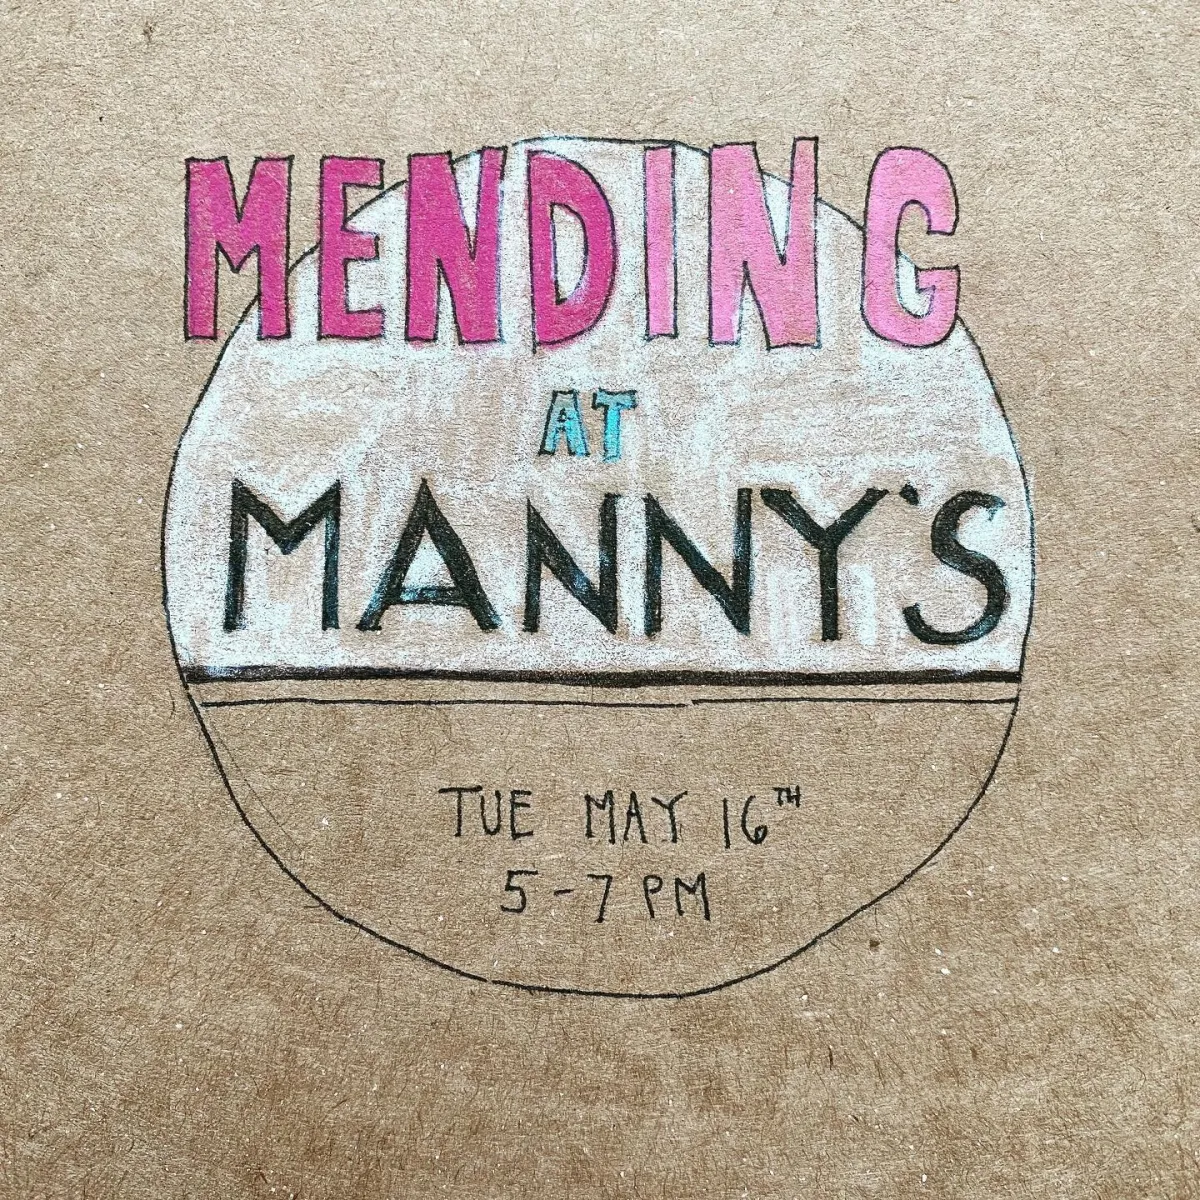 MENDING
AT
MANNY'S
TUE MAY 16TH
5-7 PM